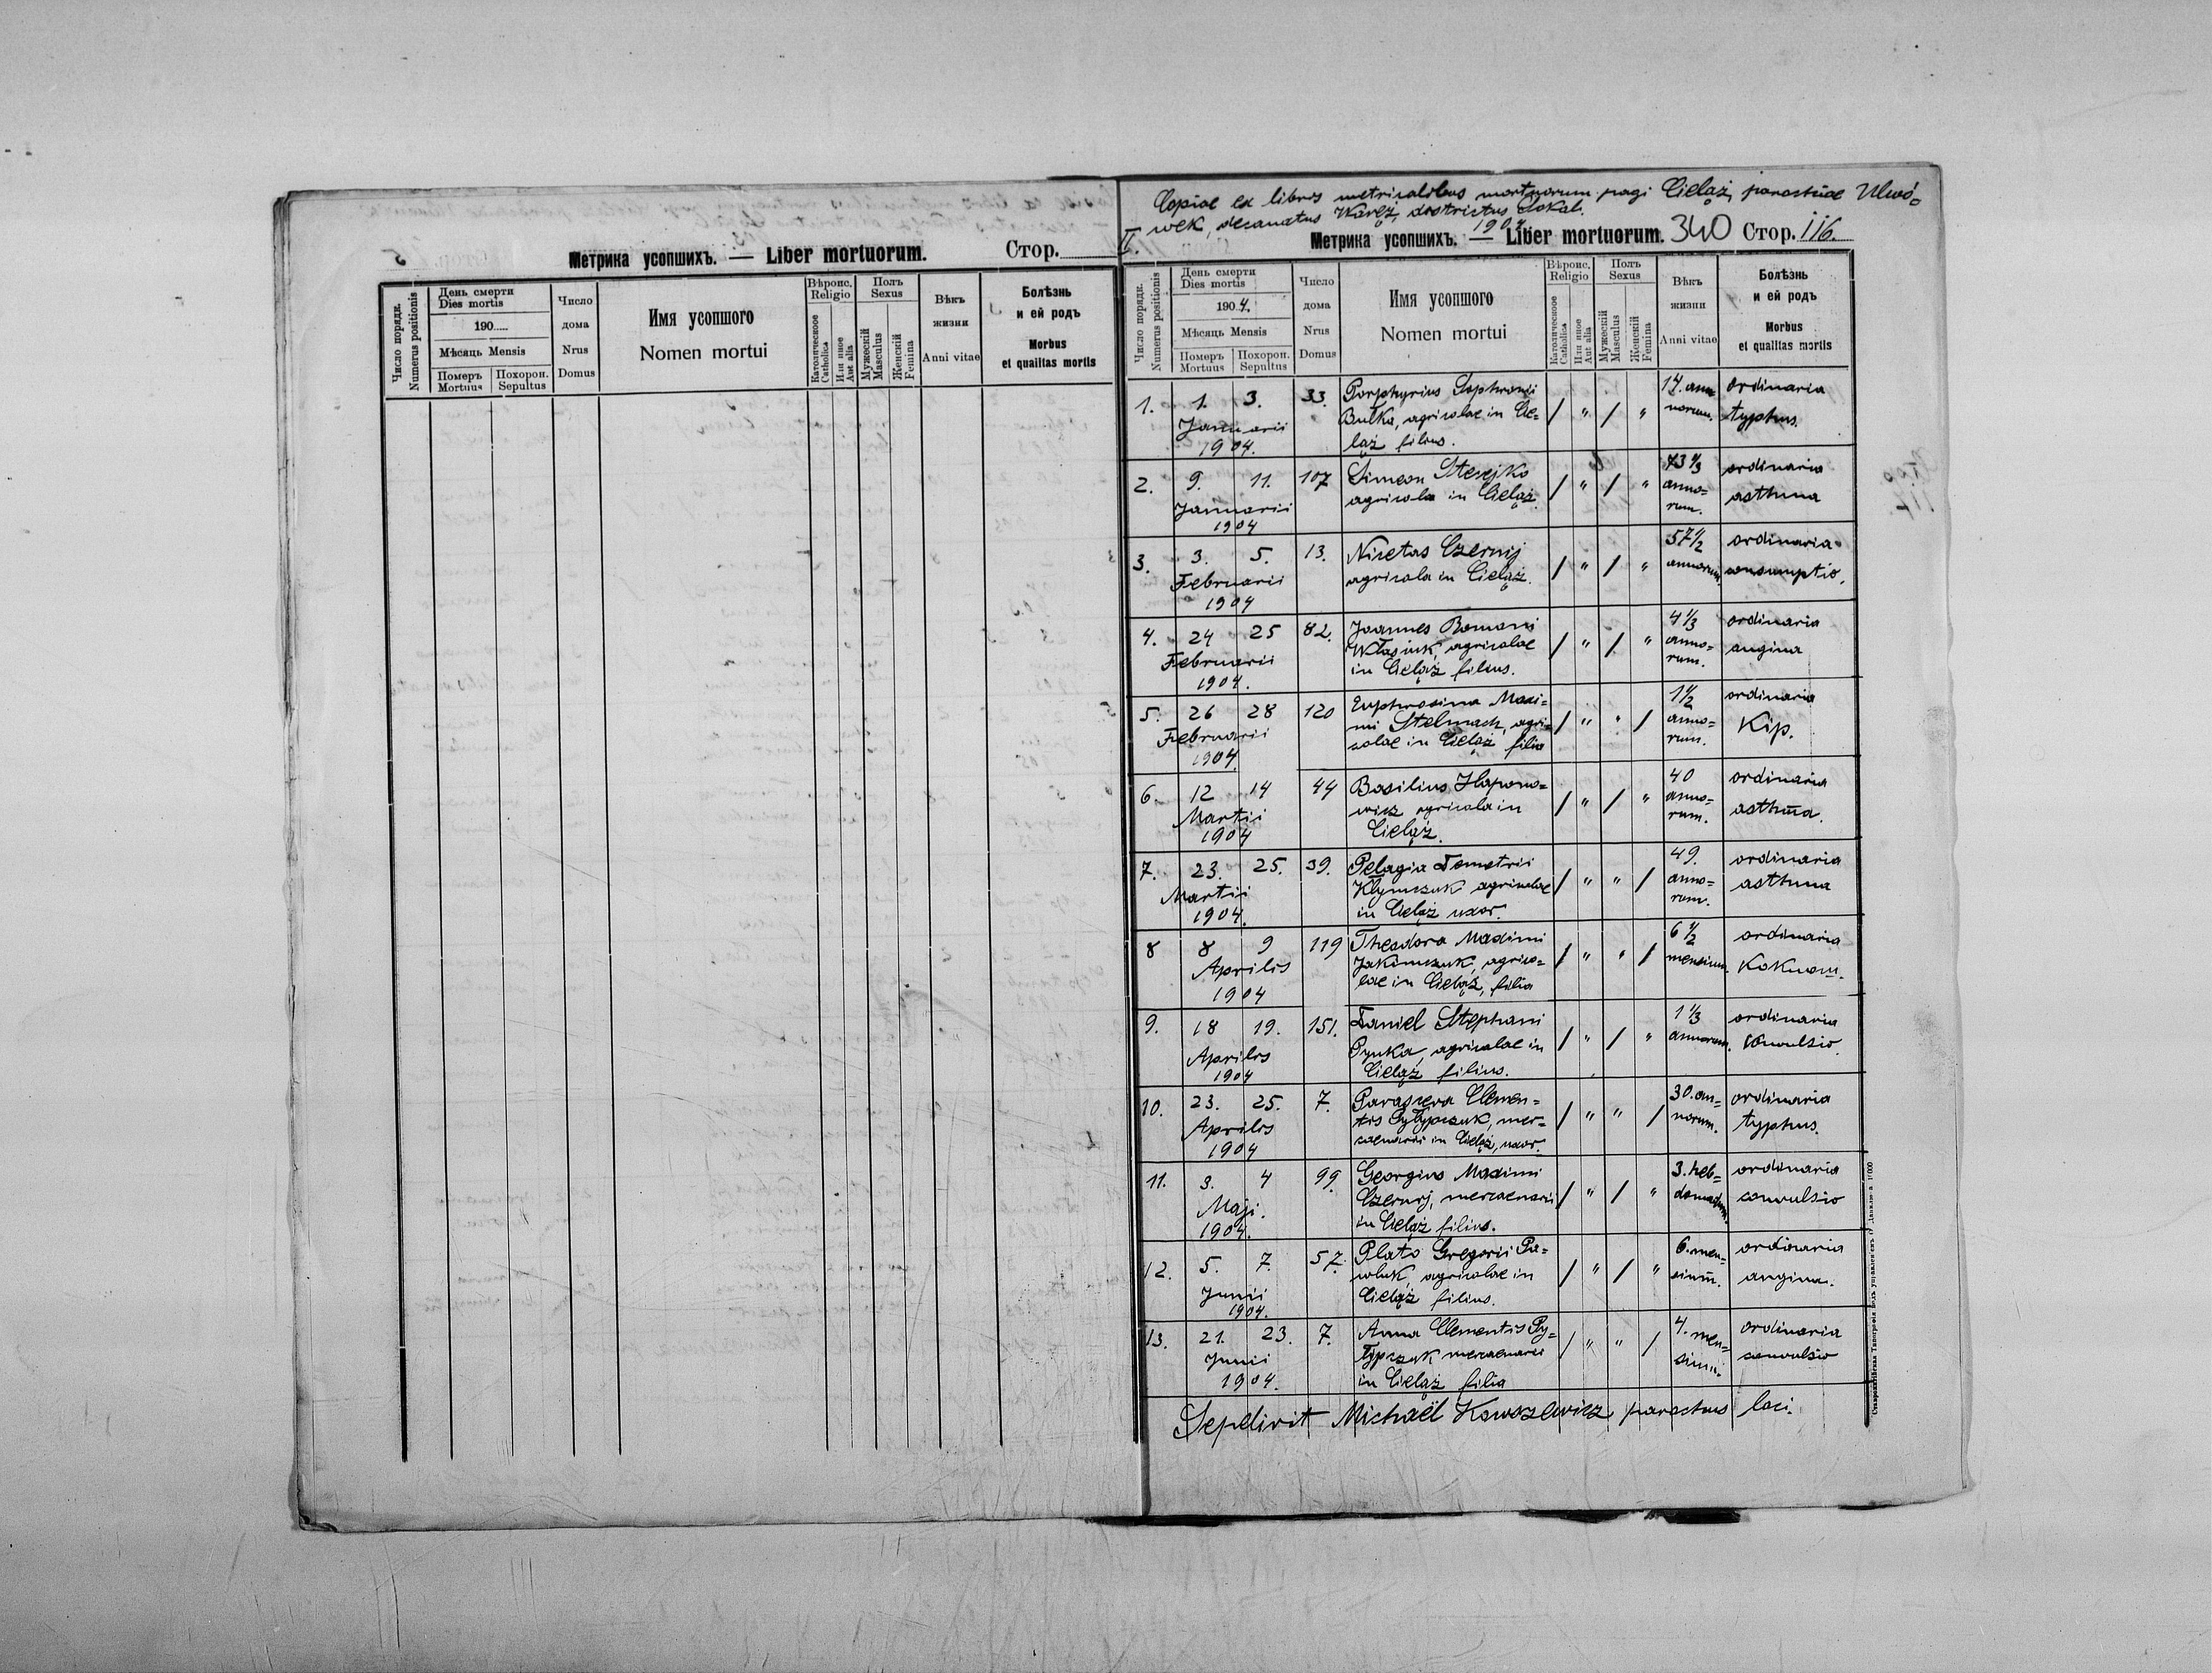 5
Метрика усопшихъ. — Liber mortuorum. Стор.
Число порядк. Numerus positionis
День смерти
Dies mortis
190
Мѣсяць Mensis
Померъ Mortuus
Похорон. Sepultus
Число дома Nrus Domus
Имя усопшого
Nomen mortui
Вѣроис. Religio
Католическое Catholica
Или иное Aut alia
Полъ Sexus
Мужескій Masculus
Женскій Femina
Вѣкъ жизни Anni vitae
Болѣзнь
и ей родъ
Morbus
et qualitas mortis
Copiae ex libris metricalibus mortuorum pagi Cieląż, parochiae Ulwó-
wek, decanatus Waręż, districtus Sokal.
1904
II.
Метрика усопшихъ. — Liber mortuorum. 340 Стор. 116.
Число порядк. Numerus positionis
День смерти
Dies mortis
1904.
Мѣсяць Mensis
Померъ Mortuus
Похорон. Sepultus
Число дома Nrus Domus
Имя усопшого
Nomen mortui
Вѣроис. Religio
Католическое Catholica
Или иное Aut alia
Полъ Sexus
Мужескій Masculus
Женскій Femina
Вѣкъ жизни Anni vitae
Болѣзнь
и ей родъ
Morbus
et qualitas mortis
1. 1. 3. 33. Porphyrius Sophronii / " / " 17. ann ordinaria
Januarii Bułka, agricolae in Cie= norum. typhus.
1904. ląż filius.
2. 9. 11. 107 Simeon / " / " 73 1/3 ordinaria
Januarii agricola in Cieląż. anno= asthma
1904 rum.
3. 3. 5. 13. Nicetas Czernij / " / " 57 1/2 ordinaria
Februarii agricola in Cieląż. annorum consumptio.
1904
4. 24 25 82. Joannes Romani / " / " 4 1/3 ordinaria
Februarii Własiuk, agricolae anno= angina
1904. in Cieląż filius. rum.
5. 26 28 120 Euphrosina Maxi= / " " / 1 1/2 ordinaria
Februarii mi Stelmach, agri= anno= Kip.
1904. colae in Cieląż filia rum.
6. 12 14 44 Basilius Hapono= / " / " 40 ordinaria
Martii wicz agricola in anno= asthma.
1904 Cieląż. rum.
7. 23. 25. 39. Pelagia Demetrii / " " / 49. ordinaria
Martii Kłymczuk agricolae anno= asthma
1904. in Cieląż uxor. rum.
8 8 9 119 Theodora Maximi / " " / 6 1/2 ordinaria
Aprilis Jakimczuk, agrico= mensium.
1904 lae in Cieląż, filia
9. 18 19. 151. Daniel Stephani / " / " 1 1/3 ordinaria
Aprilis agricolae in annorum. convulsio.
1904 Cieląż filius.
10. 23. 25. 7. Parasceva Clemen= / " " / 30. an= ordinaria
Aprilis tis Pyłypczuk, mer= norum. typhus.
1904 cenarii in Cieląż, uxor.
11. 3. 4 99. Georgius Maximi / " / " 3. heb= ordinaria
Maji. Czernij, mercenarii domadum. convulsio
1904. in Cieląż filius.
12. 5. 7. 57. Plato Gregorii Pa= / " / " 6. men= ordinaria
Junii wluk, agricolae in sium. angina.
1904. Cieląż filius.
13. 21. 23. 7. Anna Clementis Py= / " " / 4. men= ordinaria
Junii łypczuk mercenarii sium. convulsio
1904. in Cieląż filia
Sepelivit Michaël parochus loci.